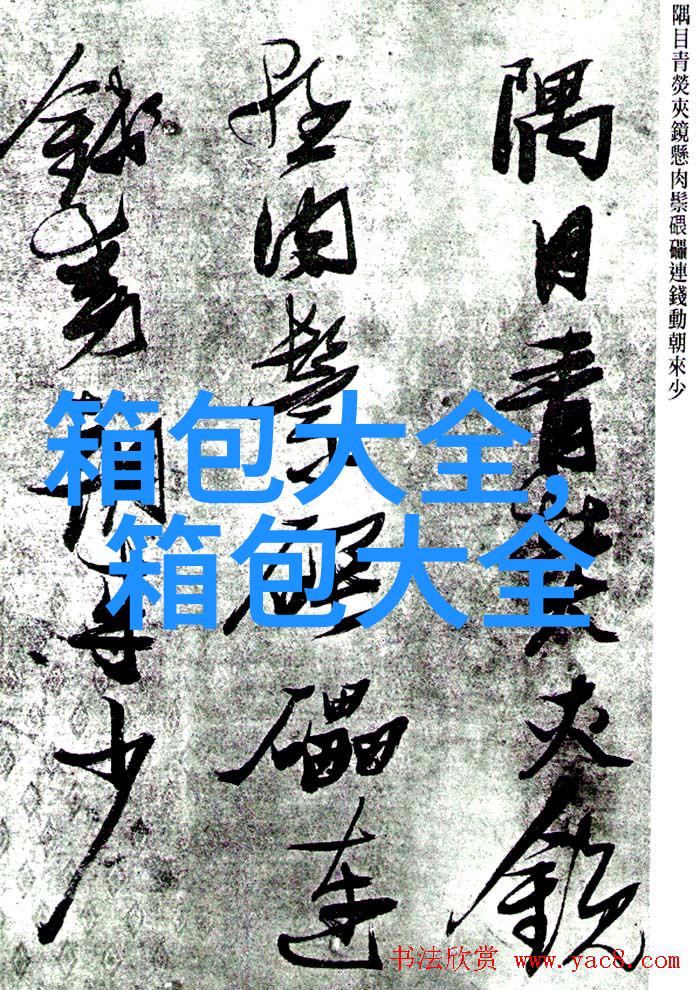 隅目青熒夾鏡懸肉鬃碨礧連錢動朝來少
隅目青熒夾鏡
懸肉鬃碨礧連
錢動朝來少
箱包大全,
箱包大全
书法欣赏 www.yac8.com